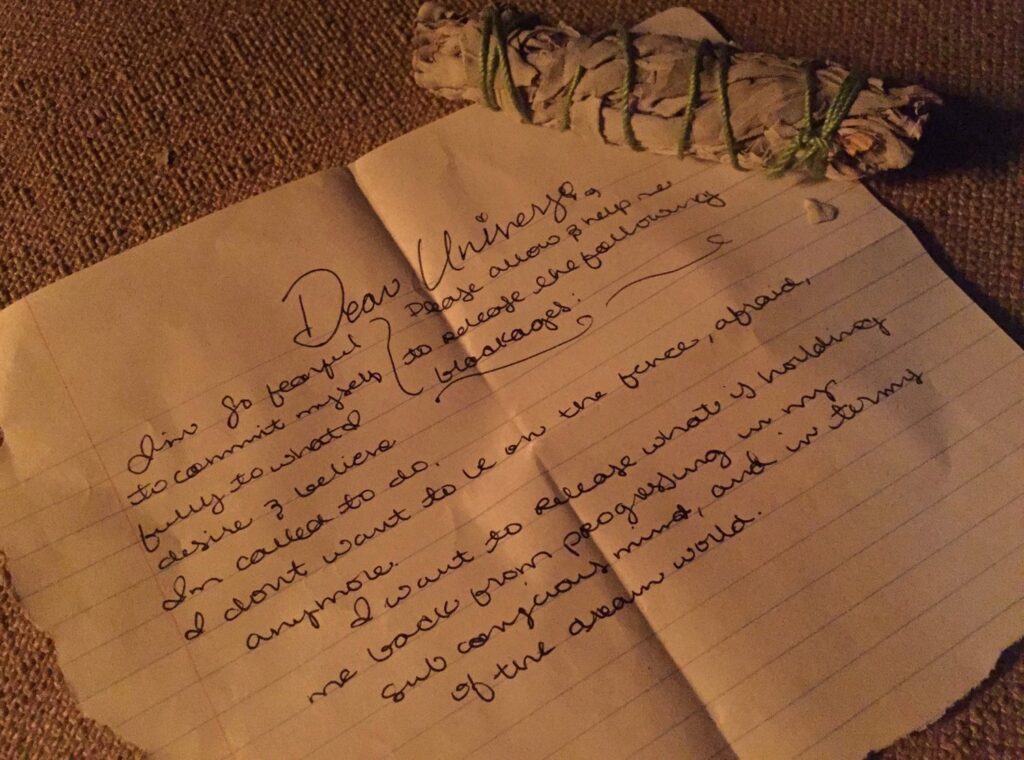 Dear Universe,
Please allow & help me
to release the following
blockages:
I'm so fearful
to commit myself
fully to what I
desire & believe
I'm called to do.
I don't want to be on the fence, afraid,
anymore.
I want to release what is houlding
me back from progressing in my
subconscious mind, and in terms
of the dream world.